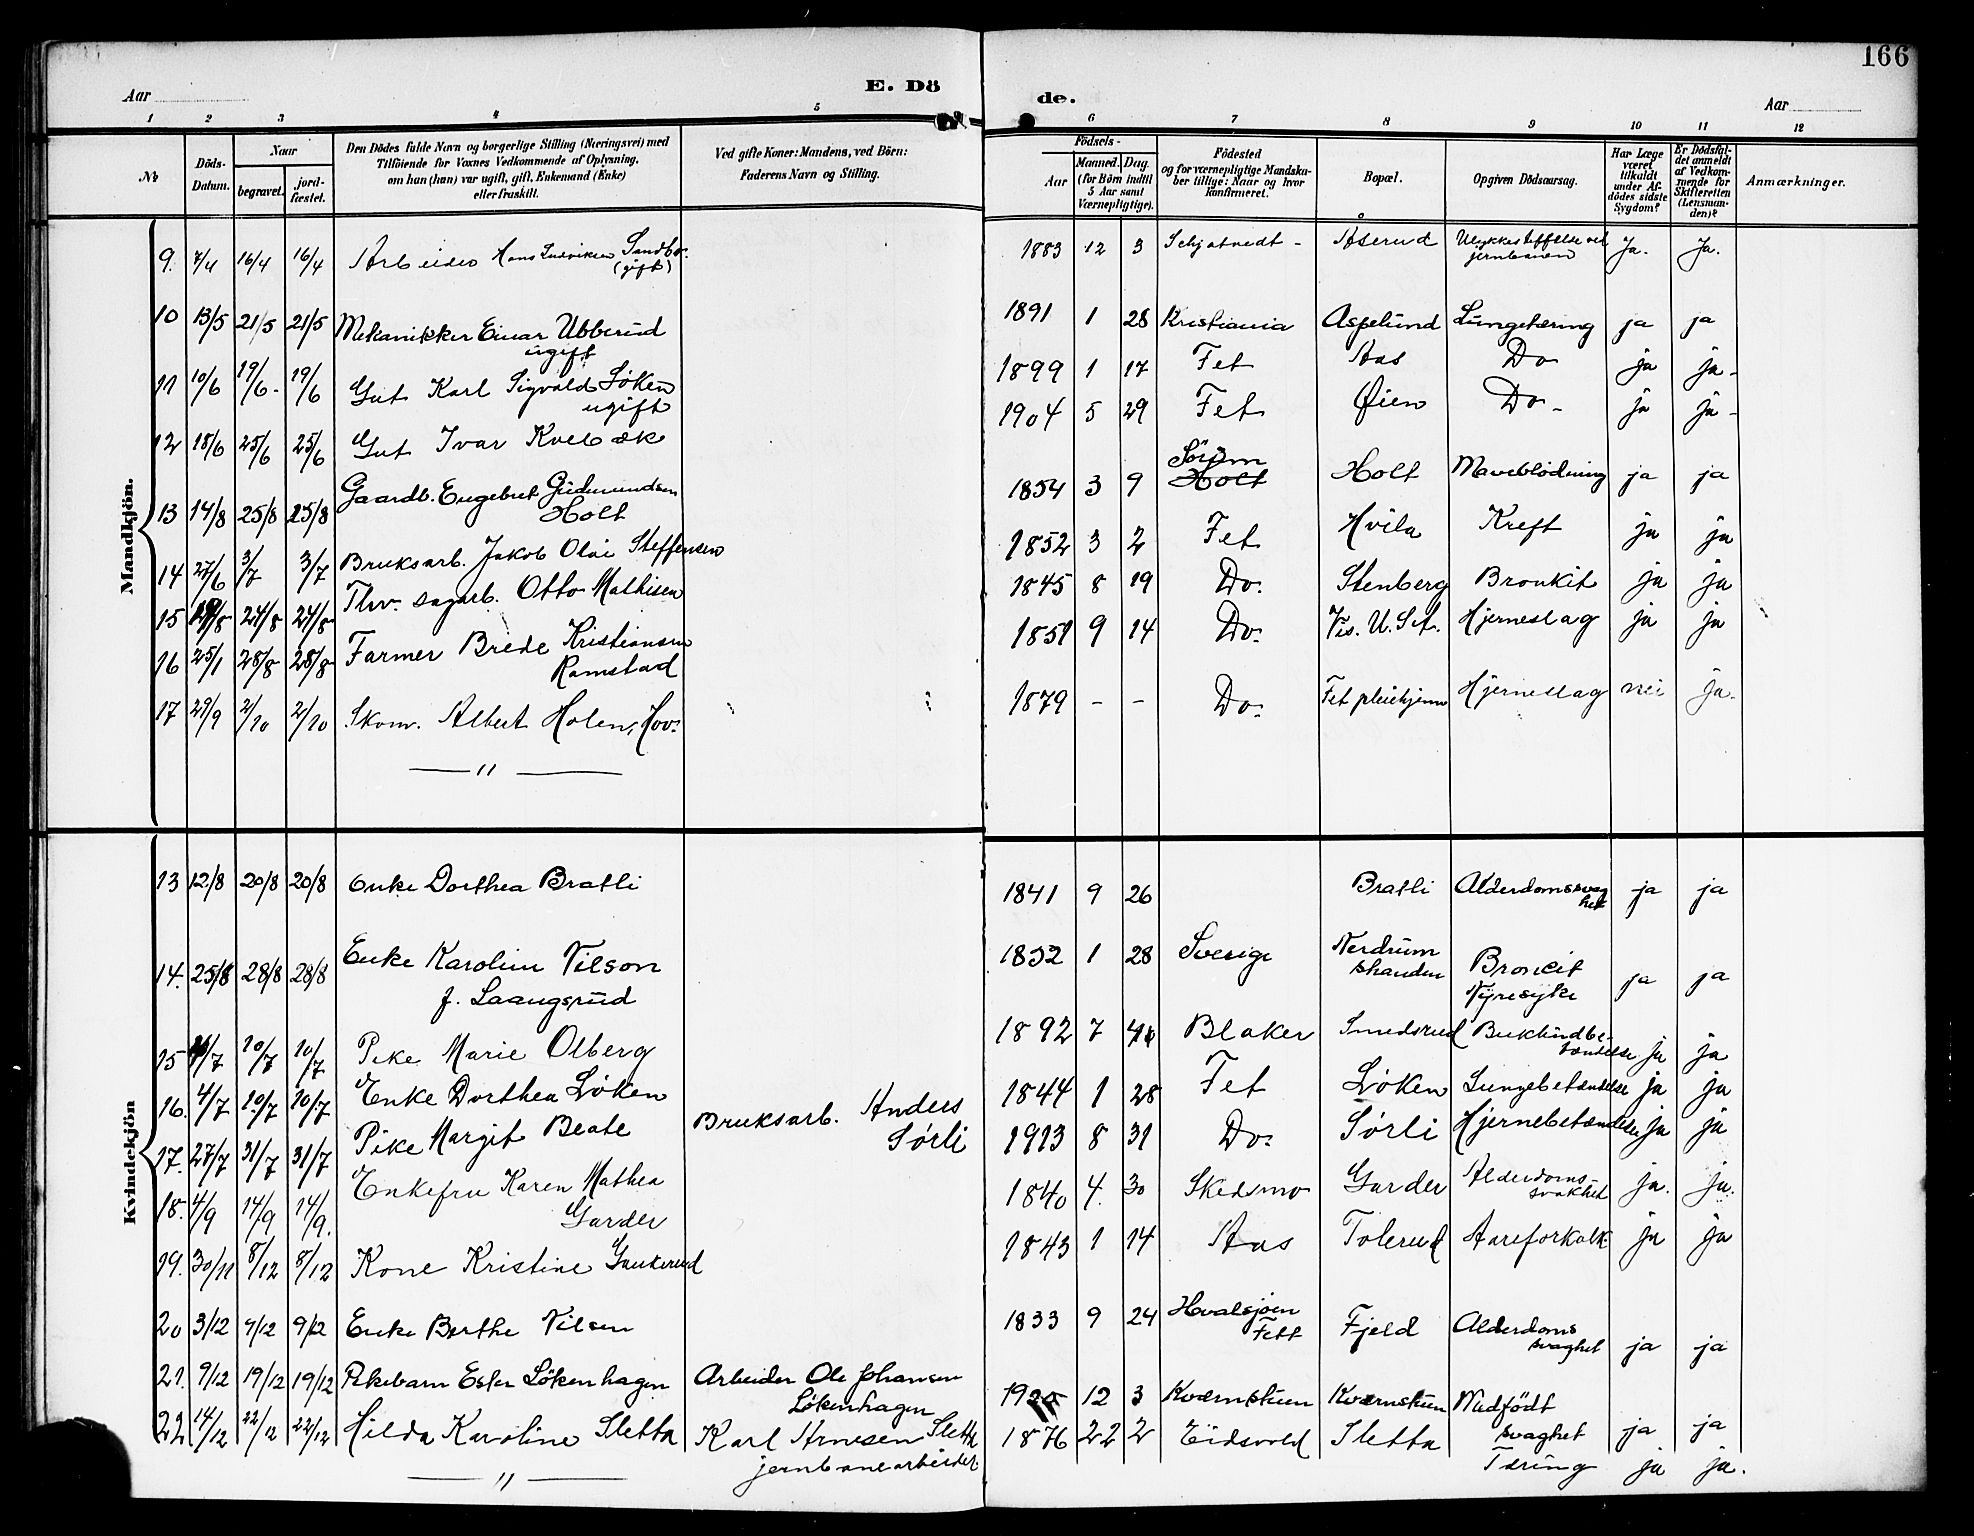 166
Aar
E. Dö
de.
Aar
1 2 3 4 5 6 7 8 9 10 11 12
No
Döds-Datum.
Naar
begravet.
jord-fæstet.
Den Dödes fulde Navn og borgerlige Stilling (Næringsvei) med
Tilföiende for Voxnes Vedkommende af Oplysning,
om han (hun) var ugift, gift, Enkemand (Enke)
eller fraskilt.
Ved gifte Koner: Mandens, ved Börn:
Faderens Navn og Stilling.
Födsels-
Aar
Maaned. Dag.
(for Börn indtil
5 Aar samt
Værnepligtige).
Födested
og for værnepligtige Mandska-
ber tillige: Naar og hvor
konfirmeret.
Bopæl.
Opgiven Dödsaarsag.
Har Læge
været
tilkaldt
under Af-
dödes sidste
Sygdom?
Er Dödsfal-
det anmeldt
af Vedkom-
mende for
Skifteretten
(Lensman-
den)?
Anmærkninger.
Mandkjön.
9. 7/4 16/4 16/4 Arbeider Hans Ludviksen Sandbo. 1883 12 3 Åserud Ulykkestilfælde ved Ja. Ja.
(gift) jernbanen
10 13/5 21/5 21/5 Mekanikker Einar Ubberud 1891 1 28 Kristiania Aspelund Lungetæring ja ja
ugift
11 10/6 19/6. 19/6 Gut Karl Sigvald Løken 1899 1 17 Fet Aas Do ja ja-
ugift
12 18/6 25/6 25/6 Gut Ivar Kvebæk 1904 5 29 Fet Øien Do- ja ja-
13 14/8 25/8 25/8 Gaardb. Engebret Gudmundsen 1854 3 9 Sörum Holt Maveblödning ja ja
Holt Holt
14 27/6 3/7 3/7 Bruksarb. Jakob Olai Steffensen 1852 3 2 Fet Hvila Kreft ja ja
15 24/8 24/8 Thv. sagarb. Otto Mathisen 1845 8 19 Do. Stenberg Bronkit ja ja
16 28/8 28/8 Farmer Brede Kristiansen 1851 9 14 Do. Vis. U.S.A. Hjerneslag ja ja
Ramstad
17 29/9 2/10 2/10 Skom. Albert Holen, Hov. 1879 - - Do. Fet pleiehjem Hjerneslag nei ja.
— " —
Kvindekjön
13 12/8 20/8 20/8 Enke Dorthea Bratli 1841 9 26 Bratli Alderdomssvag ja ja
het
14. 25/8 28/8 28/8 Enke Karolin Nilson 1832 1 28 Sverige Nerdrum Broncit ja ja
f. Laangsrud stranden Nyresyke
15 10/7 10/7 Pike Marie Olberg 1892 7 Blaker Smedsrud Bukhindbe- ja ja
tændelse
16. 4/7 10/7 10/7 Enke Dorthea Løken 1844 1 28 Fet Løken Lungebetændelse ja ja
17. 27/7 31/7 31/7 Pike Margit Beate Bruksarb. Anders 1913 8 31 Do. Sørli Hjernebetændelse ja ja
Sørli
18. 4/9 14/9 14/9. Enkefru Karen Mathea 1840 4. 30 Skedsmo Garder Alderdoms- ja. ja.
Garder svakhet
19. 30/11 8/12 8/12 Kone Kristine Gaukerud 1843 1 14 Aas Tolerud Aareforkalk ja ja
20 3/12 9/12 9/12 Enke Berthe Nilsen 1833 9 24 Hvalsjöen Fjeld Alderdoms ja ja
Fett svaghet
21. 9/12 19/12 19/12 Pikebarn Ester Lökenhagen Arbeider Ole Johansen 12 3 Kværnstuen Kværnstuen Medfödt
Lökenhagen svaghet ja ja
22 14/12 22/12 22/12 Hilda Karoline Sletta Karl Arnesen Sletta 1876 22 2 Eidsvold Sletta
jernbanearbeider. Tæring ja ja.
— " —